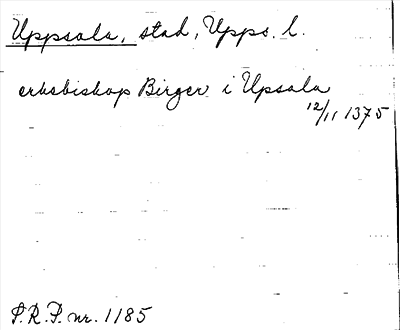 Uppsala, stad, Upps. l.
erkebiskop Birger i Upsala
12/11 1375
S.R.P. nr. 1185